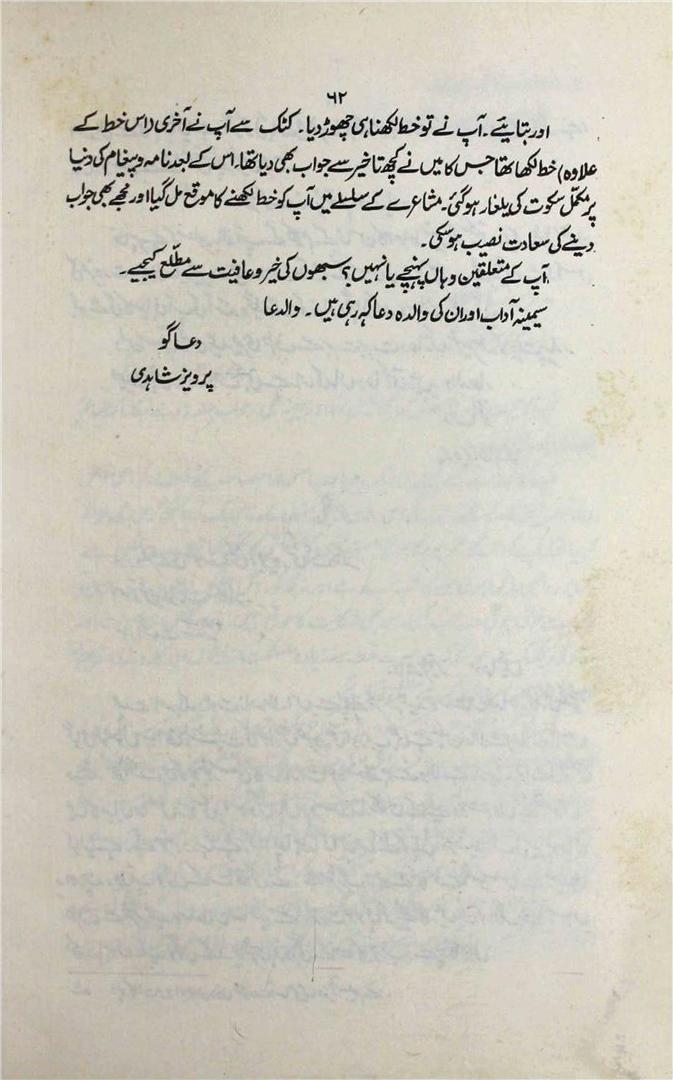 ۶۲
اور بتایئے۔ آپ نے تو خط لکھنا ہی چھوڑ دیا۔ کٹک سے آپ نے آخری (اس خط کے
علاوہ) خط لکھا تھا جس کا میں نے کچھ تاخیر سے جواب بھی دیا تھا۔ اس کے بعد نامہ و پیغام کی دنیا
پر مکمّل سکوت کی یلغار ہو گئی۔ مشاعرے کے سلسلے میں آپ کو خط لکھنے کا موقع مل گیا اور مجھے بھی جواب
دینے کی سعادت نصیب ہو سکی۔
آپ کے متعلقین وہاں پہنچے یا نہیں؟ سبھوں کی خیر و عافیت سے مطلّع کیجیے۔
سیمینہ آداب اور ان کی والدہ دعا کہہ رہی ہیں۔ والدعا
دعا گو
پرویز شاہدی